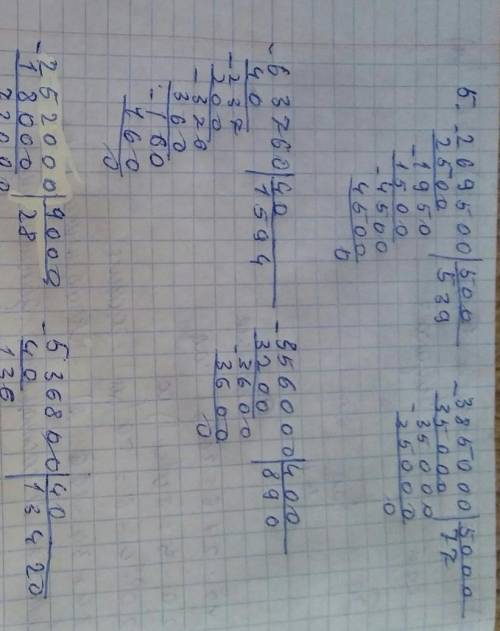 5. -269500|500
2500 |539
-1950
1500
-4500
4500
0
-385000|5000
35000 |77
-35000
35000
0
-63760|40
40 |1594
-237
200
-376
360
-160
160
0
-356000|400
3200 |890
-3600
3600
0
-252000|9000
18000 |28
72000
-536800|40
40 |13420
136